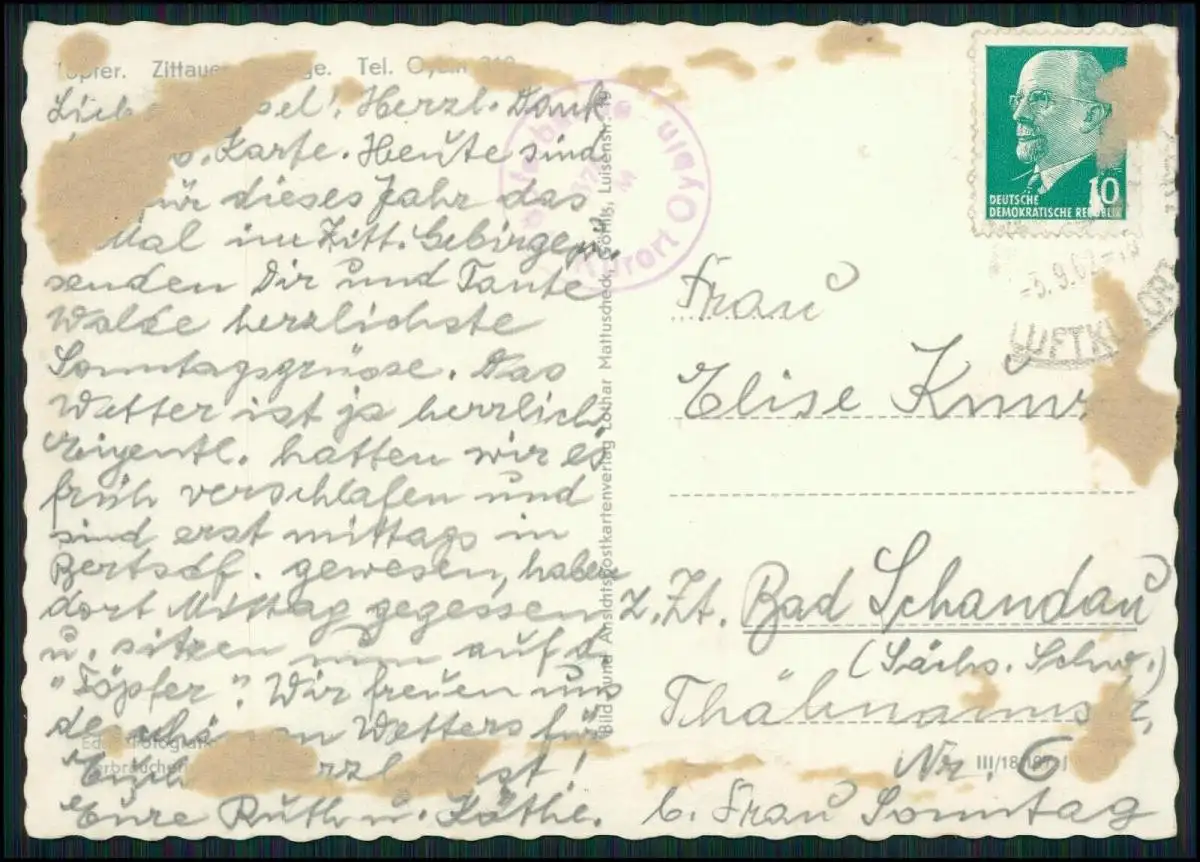 Töpfer. Zittauer Tel. Oybin
Herzl. Dank
Karte. Heute sind
für dieses Jahr das
Mal im Zitt. Gebirge u.
senden Dir und Tante
herzlichste
Sonntagsgrüsse. Das
Wetter ist ja herrlich.
Eigentl. hatten wir es
früh verschlafen und
sind erst mittags in
Bertsdf. gewesen, haben
dort Mittag gegessen
u. sitzen nun auf d.
"Töpfer". Wir freuen uns
Wetters für
Euch!
Eure Ruth u. Käthe.
Bild- und Ansichtspostkartenverlag Lothar Mattuscheck, Görlitz, Luisenstr. 19
Kurort Oybin
DEUTSCHE
DEMOKRATISCHE REPUBLIK
10
LUFTKURORT
Frau
Elise
z. Zt. Bad Schandau
(Sächs. Schw.)
Thälmannstr.
Nr. 6
III/18/197
b. Frau Sonntag